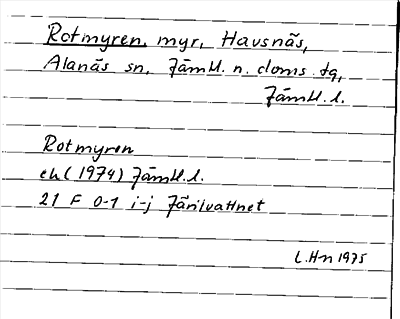 Rotmyren, myr, Havsnäs,
Alanäs sn, Jämtl. n. doms. tg,
Jämtl. l.
Rotmyren
ek (1974) Jämtl. l.
21 F 0-1 i-j Järilvattnet
L.Hn 1975